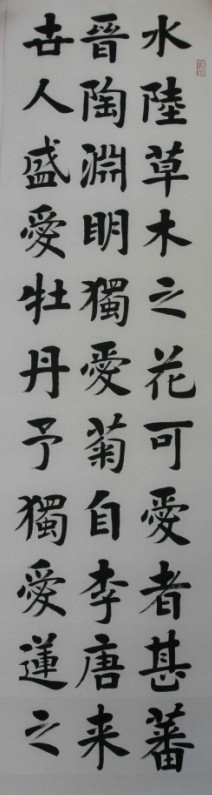 水陸草木之花可愛者甚蕃
晉陶淵明獨愛菊自李唐来
世人盛愛牡丹予獨愛蓮之